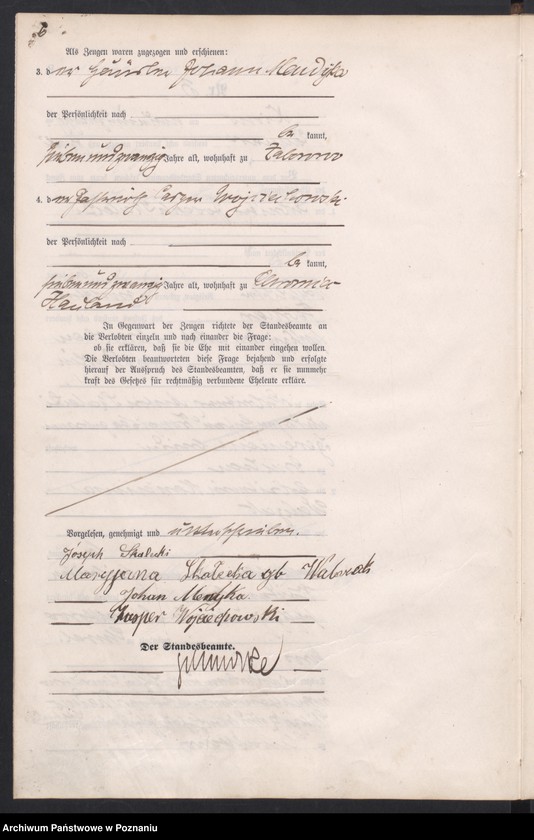 6
Als Zeugen waren zugezogen und erschienen:
3. der Häusler Johann Mendyka
der Persönlichkeit nach
be kannt,
siebenundzwanzig Jahre alt, wohnhaft zu
4. der
der Persönlichkeit nach
be kannt,
siebenundzwanzig Jahre alt, wohnhaft zu
Hauland
In Gegenwart der Zeugen richtete der Standesbeamte an
die Verlobten einzeln und nach einander die Frage:
ob sie erklären, daß sie die Ehe mit einander eingehen wollen.
Die Verlobten beantworteten diese Frage bejahend und erfolgte
hierauf der Ausspruch des Standesbeamten, daß er sie nunmehr
kraft des Gesetzes für rechtmäßig verbundene Eheleute erkläre.
Vorgelesen, genehmigt und unterschrieben.
Joseph
Maryjanna
Johan Mendyka
Kasper Wojciechowski
Der Standesbeamte.
Archiwum Państwowe w Poznaniu